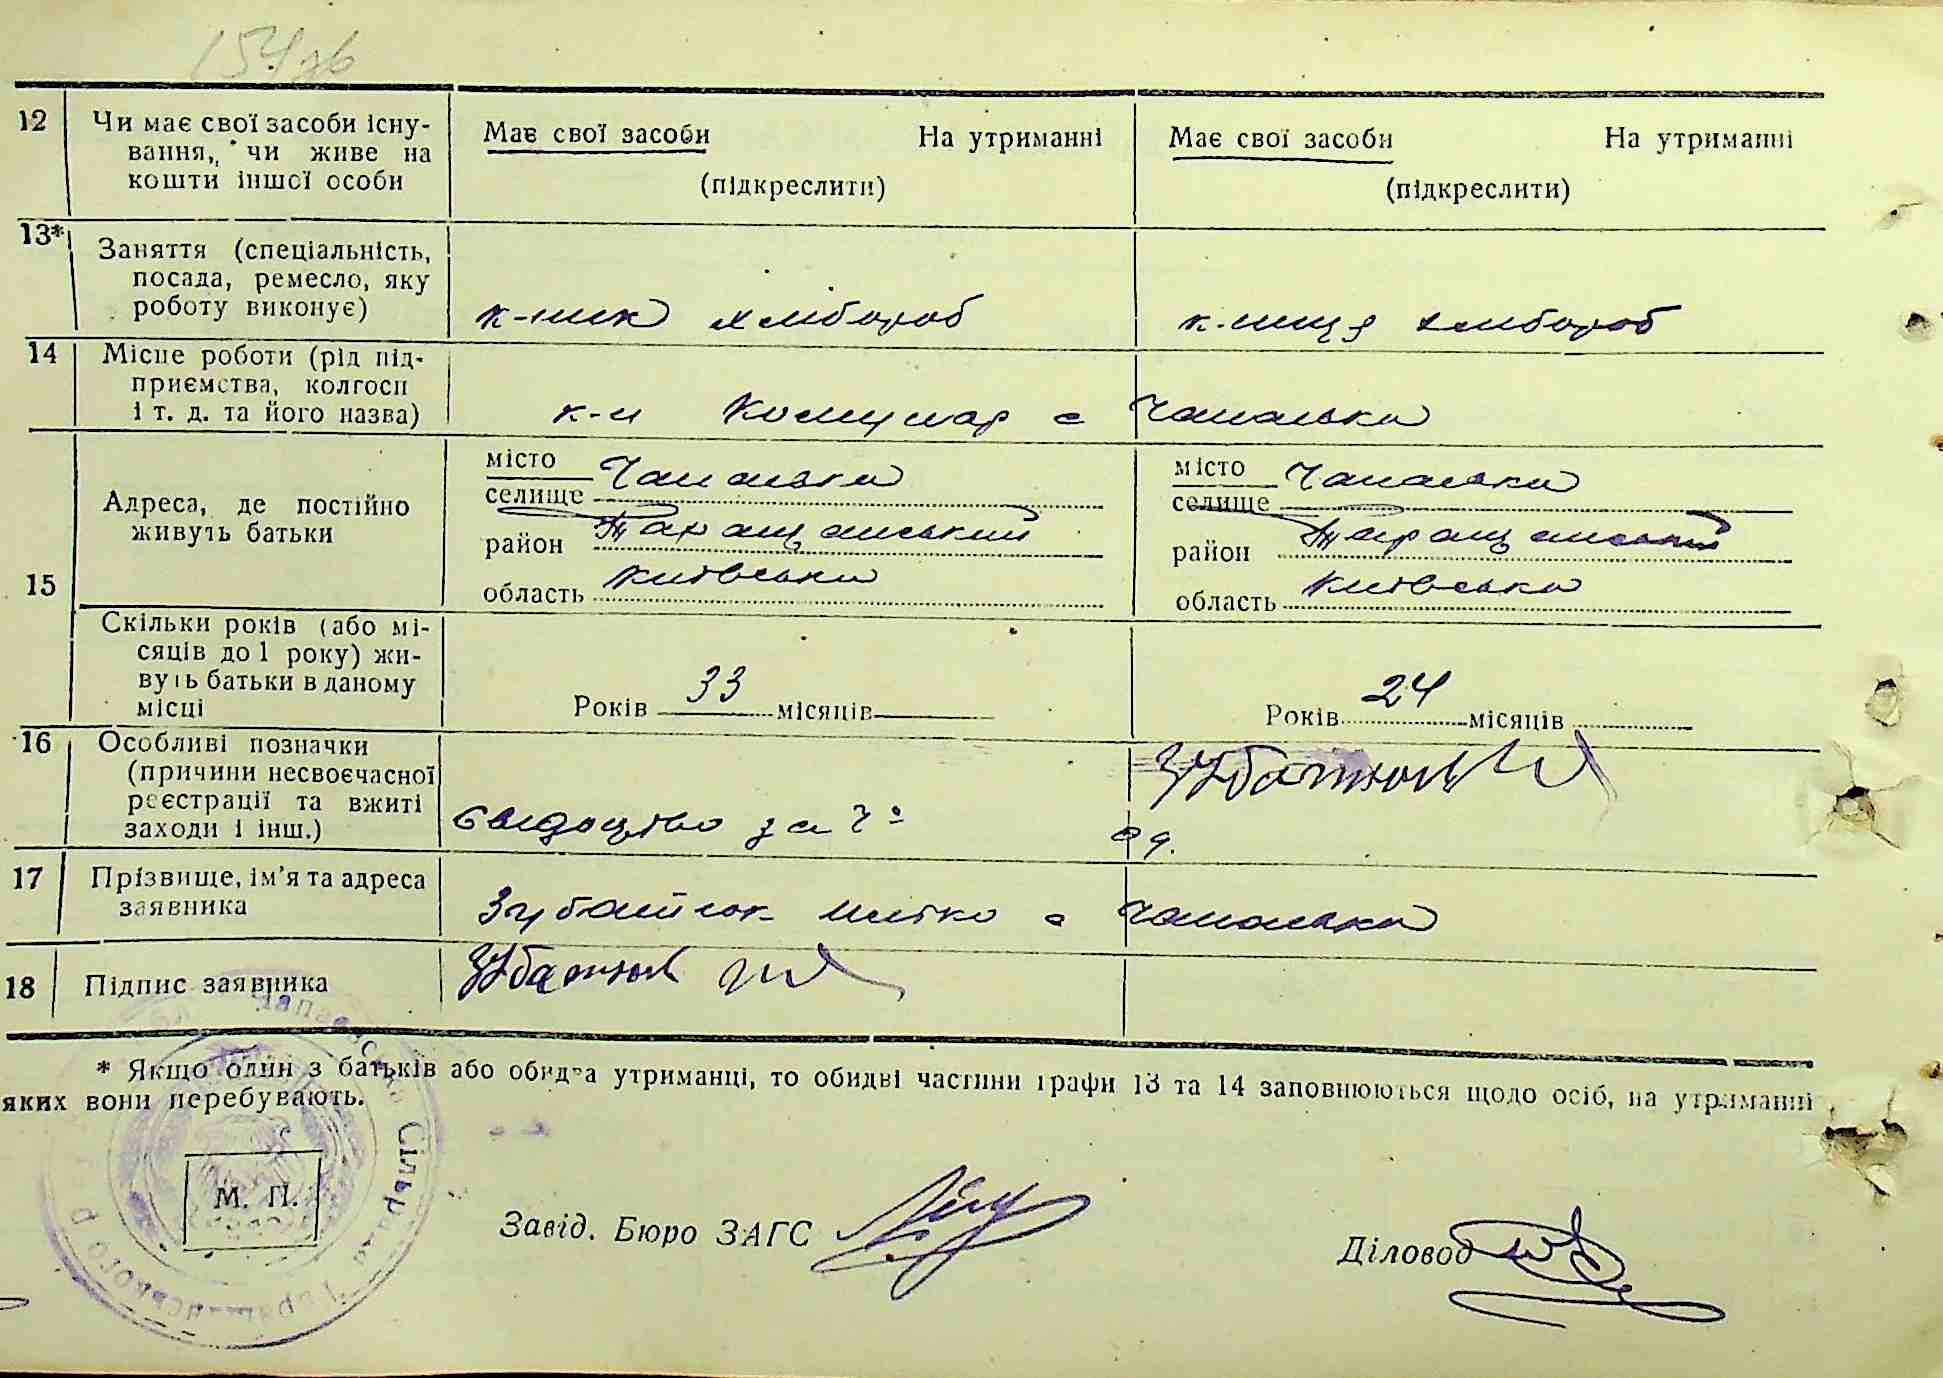 154зв
12 Чи має свої засоби існу-
вання, чи живе на
кошти іншої особи
Має свої засоби На утриманні
(підкреслити)
Має свої засоби На утриманні
(підкреслити)
13* Заняття (спеціальність,
посада, ремесло, яку
роботу виконує)
к-ник хлібороб
к-ниця хлібороб
14 Місце роботи (рід під-
приємства, колгосп
і т. д. та його назва)
к-п Комунар с Чапаєвка
15 Адреса, де постійно
живуть батьки
місто
селище Чапаєвка
район Таращанський
область Київська
місто
селище Чапаєвка
район Таращанський
область Київська
Скільки років (або мі-
сяців до 1 року) жи-
вуть батьки в даному
місці
Років 33 місяців
Років 24 місяців
16 Особливі позначки
(причини несвоєчасної
реєстрації та вжиті
заходи і інш.)
Зубатюк
свідоцтво за Ч°
од.
17 Прізвище, ім'я та адреса
заявника
Зубатюк с Чапаєвка
18 Підпис заявника
Зубатюк
* Якщо один з батьків або обидва утриманці, то обидві частини графи 13 та 14 заповнюються щодо осіб, на утриманні
яких вони перебувають.
Сільрада
М. П.
Завід. Бюро ЗАГС
Діловод